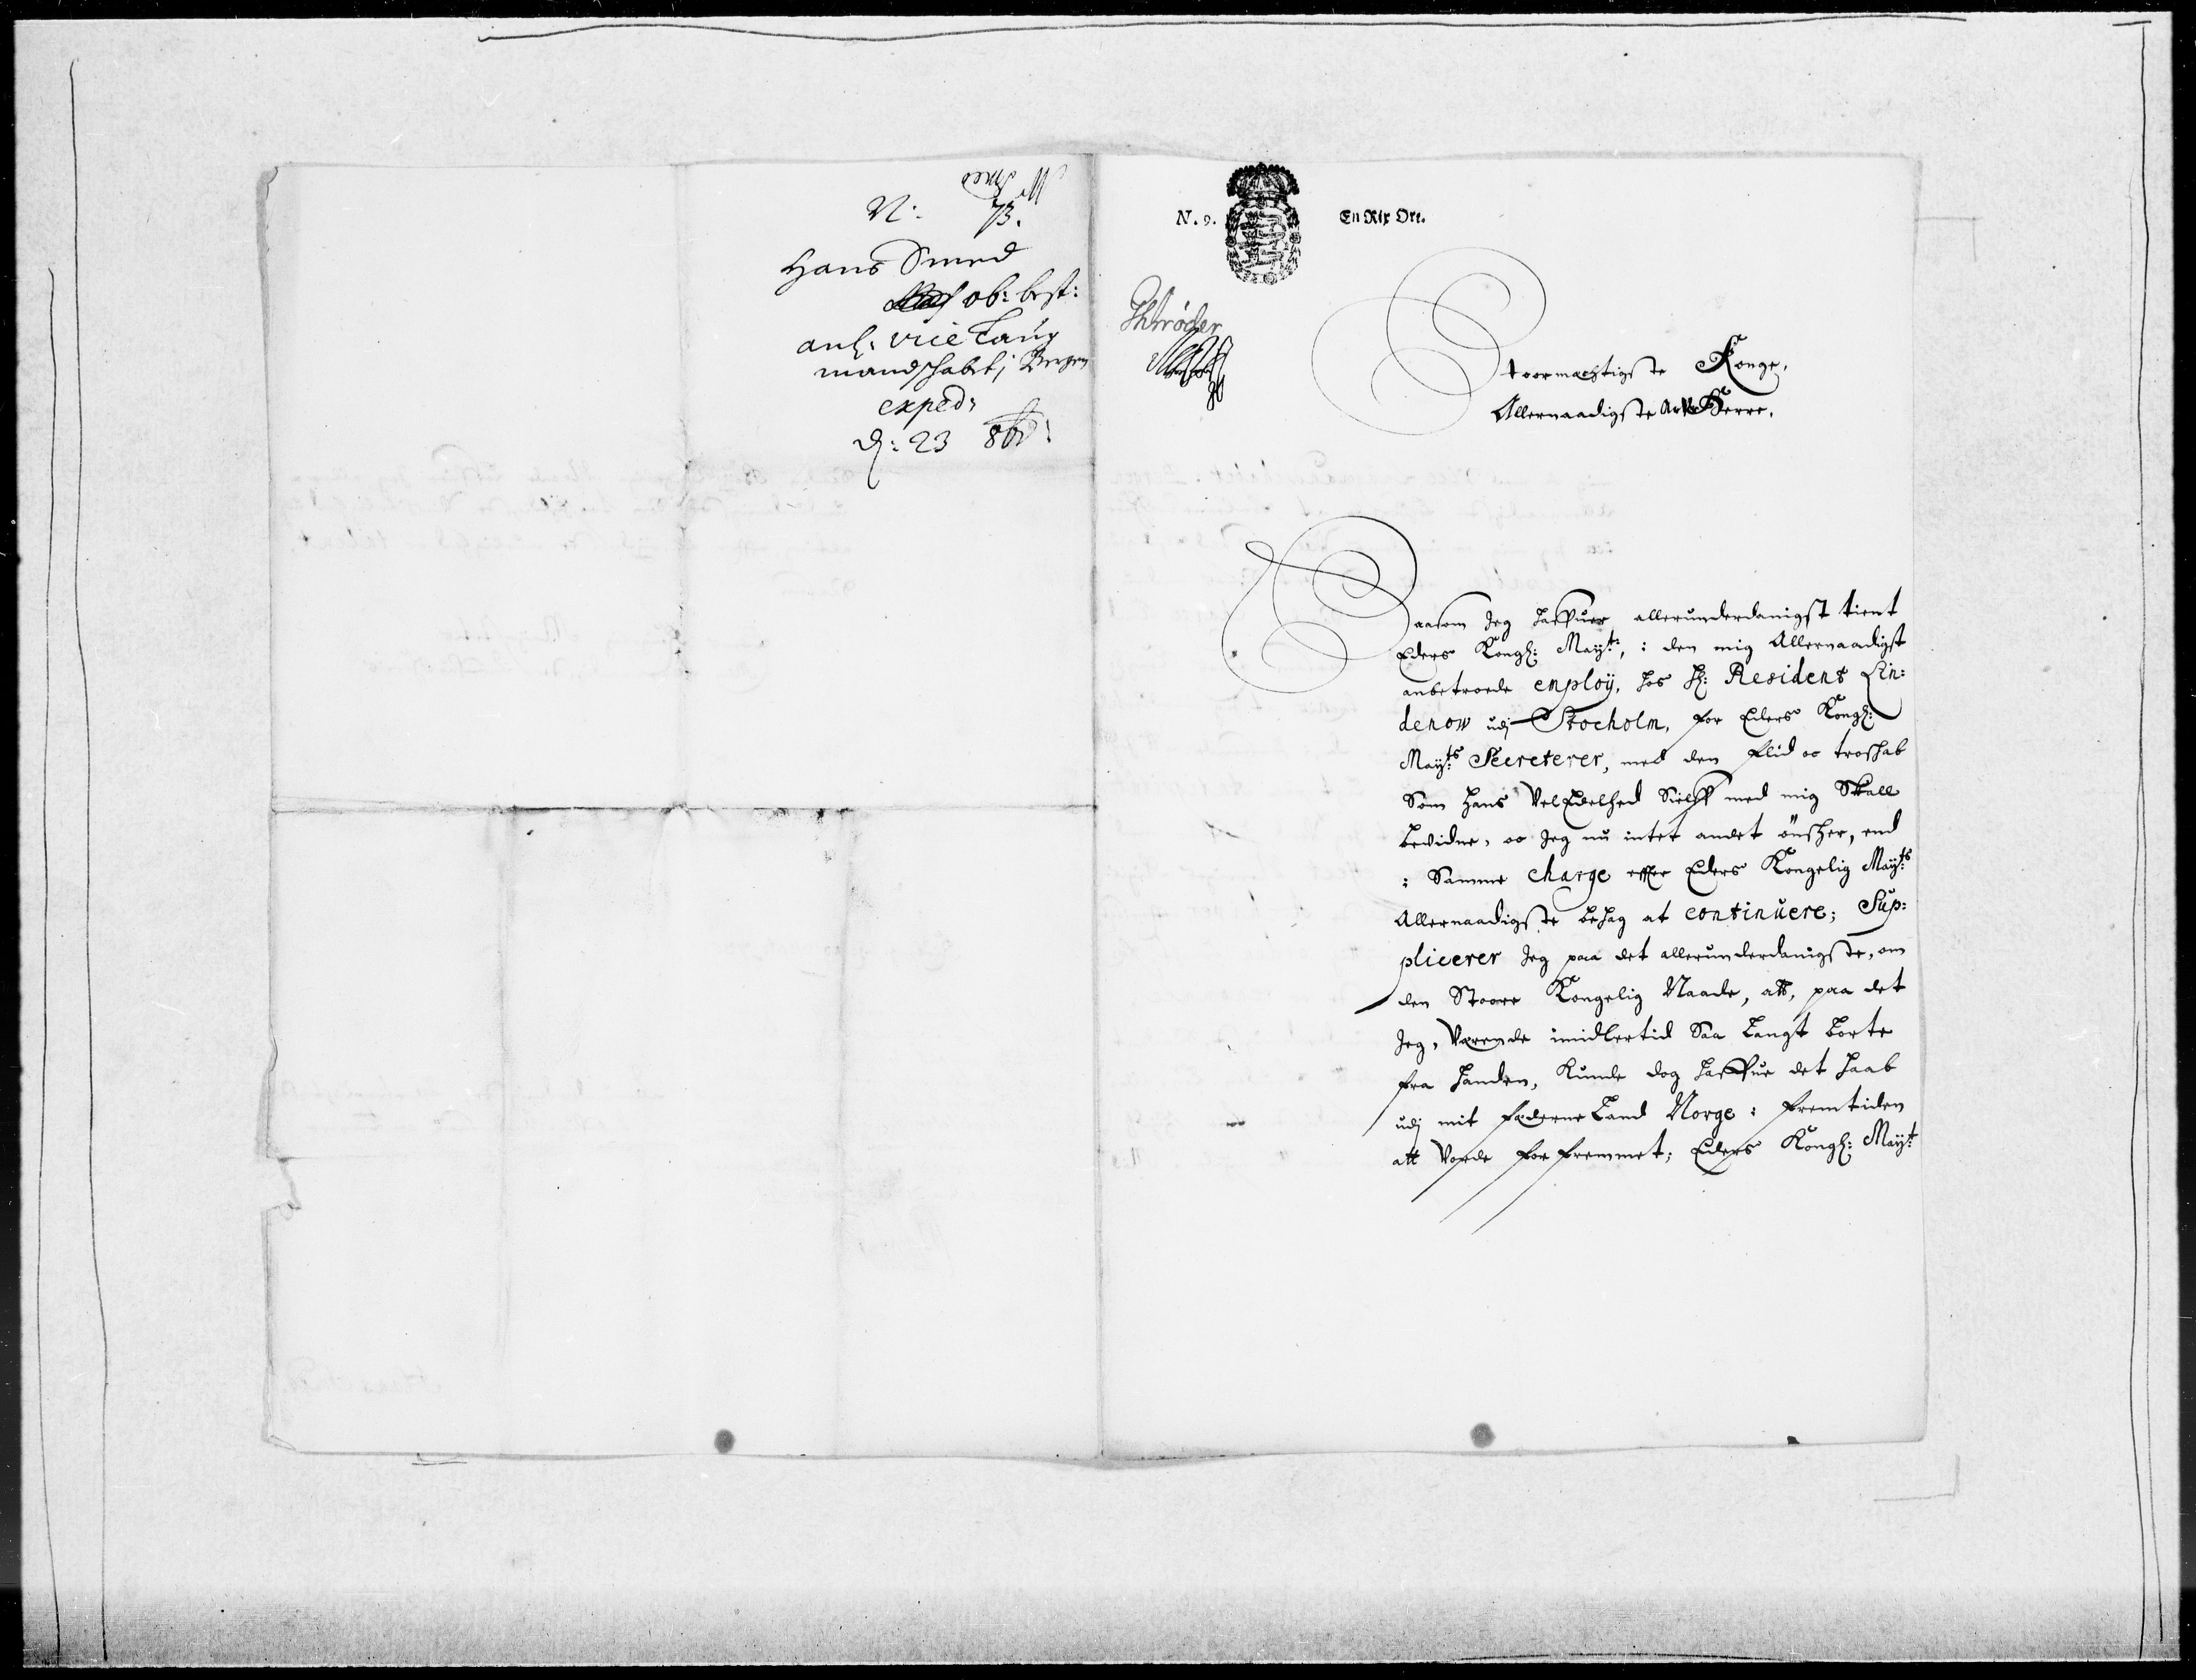 Smed
N: 73.
Hans Smed
ob: best:
anl: vice Laug
mandskabet i Bergen
exped:
d: 23 8br:
N. 9. En Rix Ort.
Schrøder
Stoormachtigste Konge,
Allernaadigste Arfve Herre,
Saasom Jeg haffuer allerunderdanigst tient
Eders Kongl: Mayt:, i den mig Allernaadigst
anbetroede employ, hos H: Resident Lin:
denow udj Stocholm, for Eders Kongl:
Mayts: Secreterer, med den flid oc troskab
Som hans VelEdelhed Sielff med mig Skall
bevidne, oc Jeg nu intet andet önsker, end
i Samme charge effter Eders Kongelig Mayts:
Allernaadigste behag at continuere; Sup:
plicerer Jeg paa det allerunderdanigste, om
den Stoore Kongelig Naade, att, paa det
Jeg, Værende imidlertid Saa Langt borte
fra handen, Kunde dog haffue det haab
udj mit fæderne Land Norge i fremtiden
att Vorde forfremmet; Eders Kongl: Mayt: